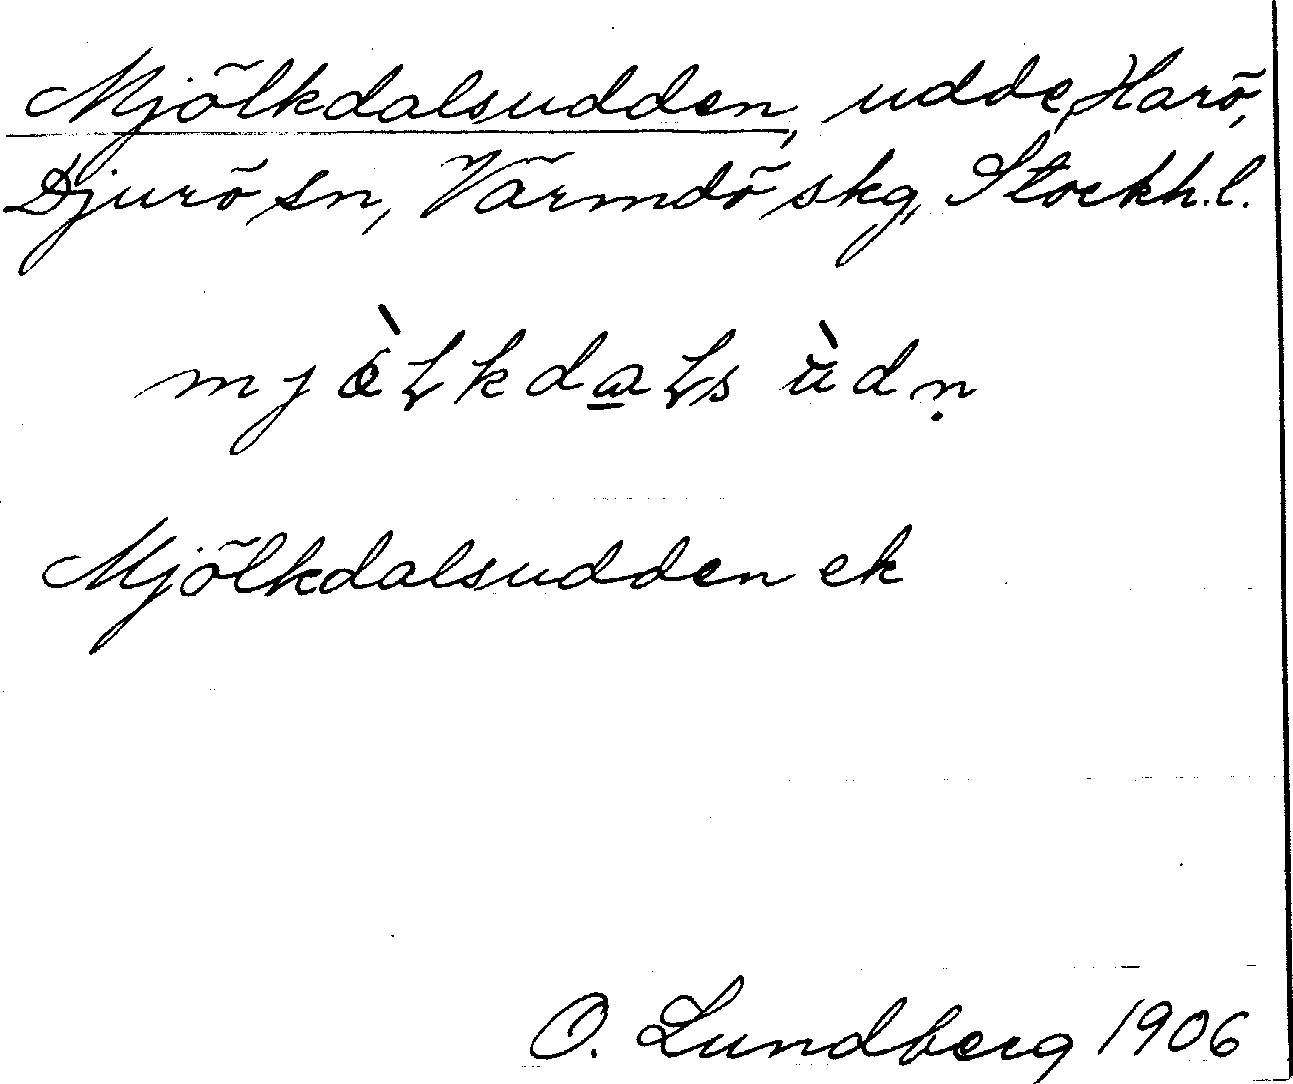 Mjölkdalsudden, udde, Harö,
Djurö sn, Värmdö skg, Stockh. l.
mjö̀Lkdaḷs ùdṇ
Mjölkdalsudden ek
O. Lundberg 1906